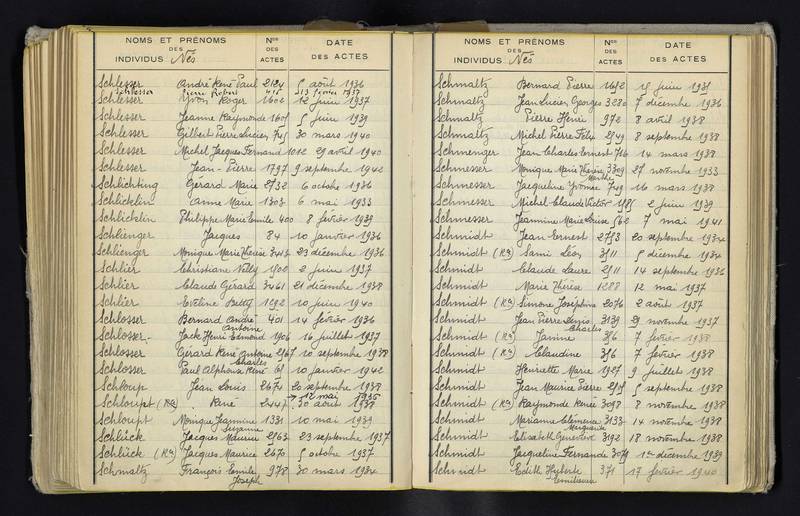 NOMS ET PRÉNOMS
DES
INDIVIDUS Nés
Nos
DES
ACTES
DATE
DES ACTES
Schlesser André René Paul 2184 5 août 1936
Schlesser Pierre Robert 415 13 février 1937
Schlesser Yvon Roger 1602 12 juin 1937
Schlesser Jeanne Raymonde 1605 5 juin 1939
Schlesser Gilbert Pierre Lucien 745 30 mars 1940
Schlesser Michel Jacques Fernand 1012 29 avril 1940
Schlesser Jean-Pierre 1797 9 septembre 1942
Schlichting Gérard Marie 2732 6 octobre 1936
Schlicklin Anne Marie 1303 6 mai 1933
Schlicklin Philippe Marie Emile 400 8 février 1939
Schlienger Jacques 84 10 janvier 1936
Schlienger Monique Marie Thérèse 3443 23 décembre 1936
Schlier Christiane Nelly 1500 2 juin 1937
Schlier Claude Gérard 3461 21 décembre 1938
Schlier Eveline Betty 1592 10 juin 1940
Schlosser Bernard André 401 14 février 1936
Antoine
Schlosser Jack Henri Edmond 1906 16 juillet 1937
Schlosser Gérard René Antoine 2567 10 septembre 1938
Charles
Schlosser Paul Alphonse René 61 10 janvier 1942
Schloup Jean Louis 2674 20 septembre 1938
→ 12 mai 1935
Schloupt (Ron) René 2447 30 août 1938
Schloupt Monique Jeannine 1331 10 mai 1939
Suzanne
Schlück Jacques Maurice 2563 23 septembre 1937
Schlück (Ron) Jacques Maurice 2670 5 octobre 1937
Schmaltz François Emile 978 30 mars 1934
Joseph
NOMS ET PRÉNOMS
DES
INDIVIDUS Nés
Nos
DES
ACTES
DATE
DES ACTES
Schmaltz Bernard Pierre 1652 15 juin 1935
Schmaltz Jean Lucien Georges 3280 7 décembre 1936
Schmaltz Pierre Henri 972 8 avril 1938
Schmaltz Michel Pierre Félix 2549 8 septembre 1938
Schmenger Jean Charles Ernest 716 14 mars 1938
Schmesser Monique Marie Thérèse 3309 27 novembre 1933
Marthe
Schmesser Jacqueline Yvonne 749 16 mars 1938
Schmesser Michel Claude Victor 1585 2 juin 1939
Schmesser Jeannine Marie Louise 562 7 mai 1941
Schmidt Jean Ernest 2753 20 septembre 1934
Schmidt (Ron) Sami Léon 3511 5 décembre 1934
Schmidt Claude Laure 2511 14 septembre 1936
Schmidt Marie Thérèse 1288 12 mai 1937
Schmidt (Ron) Simone Joséphine 2076 2 août 1937
Schmidt Jean Pierre Denis 3139 29 novembre 1937
Charles
Schmidt (Ron) Janine 356 7 février 1938
Schmidt (Ron) Claudine 356 7 février 1938
Schmidt Henriette Marie 1927 9 juillet 1938
Schmidt Jean Maurice Pierre 2505 5 septembre 1938
Schmidt (Ron) Raymonde Renée 3098 8 novembre 1938
Schmidt Marianne Clémence 3133 14 novembre 1938
Marguerite
Schmidt Elisabeth Geneviève 3192 18 novembre 1938
Schmidt Jacqueline Fernande 3079 1er décembre 1939
Schmidt Edith Huberte 371 17 février 1940
Emilienne